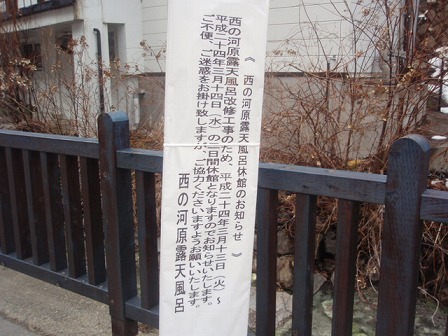 《 西の河原露天風呂休館のお知らせ 》
西の河原露天風呂改修工事のため、平成二十四年三月十三日(火)〜
平成二十四年三月十四日(水)の二日間休館となりますのでお知らせいたします。
ご不便、ご迷惑をお掛け致しますが、ご協力くださいますようお願いいたします。
西の河原露天風呂